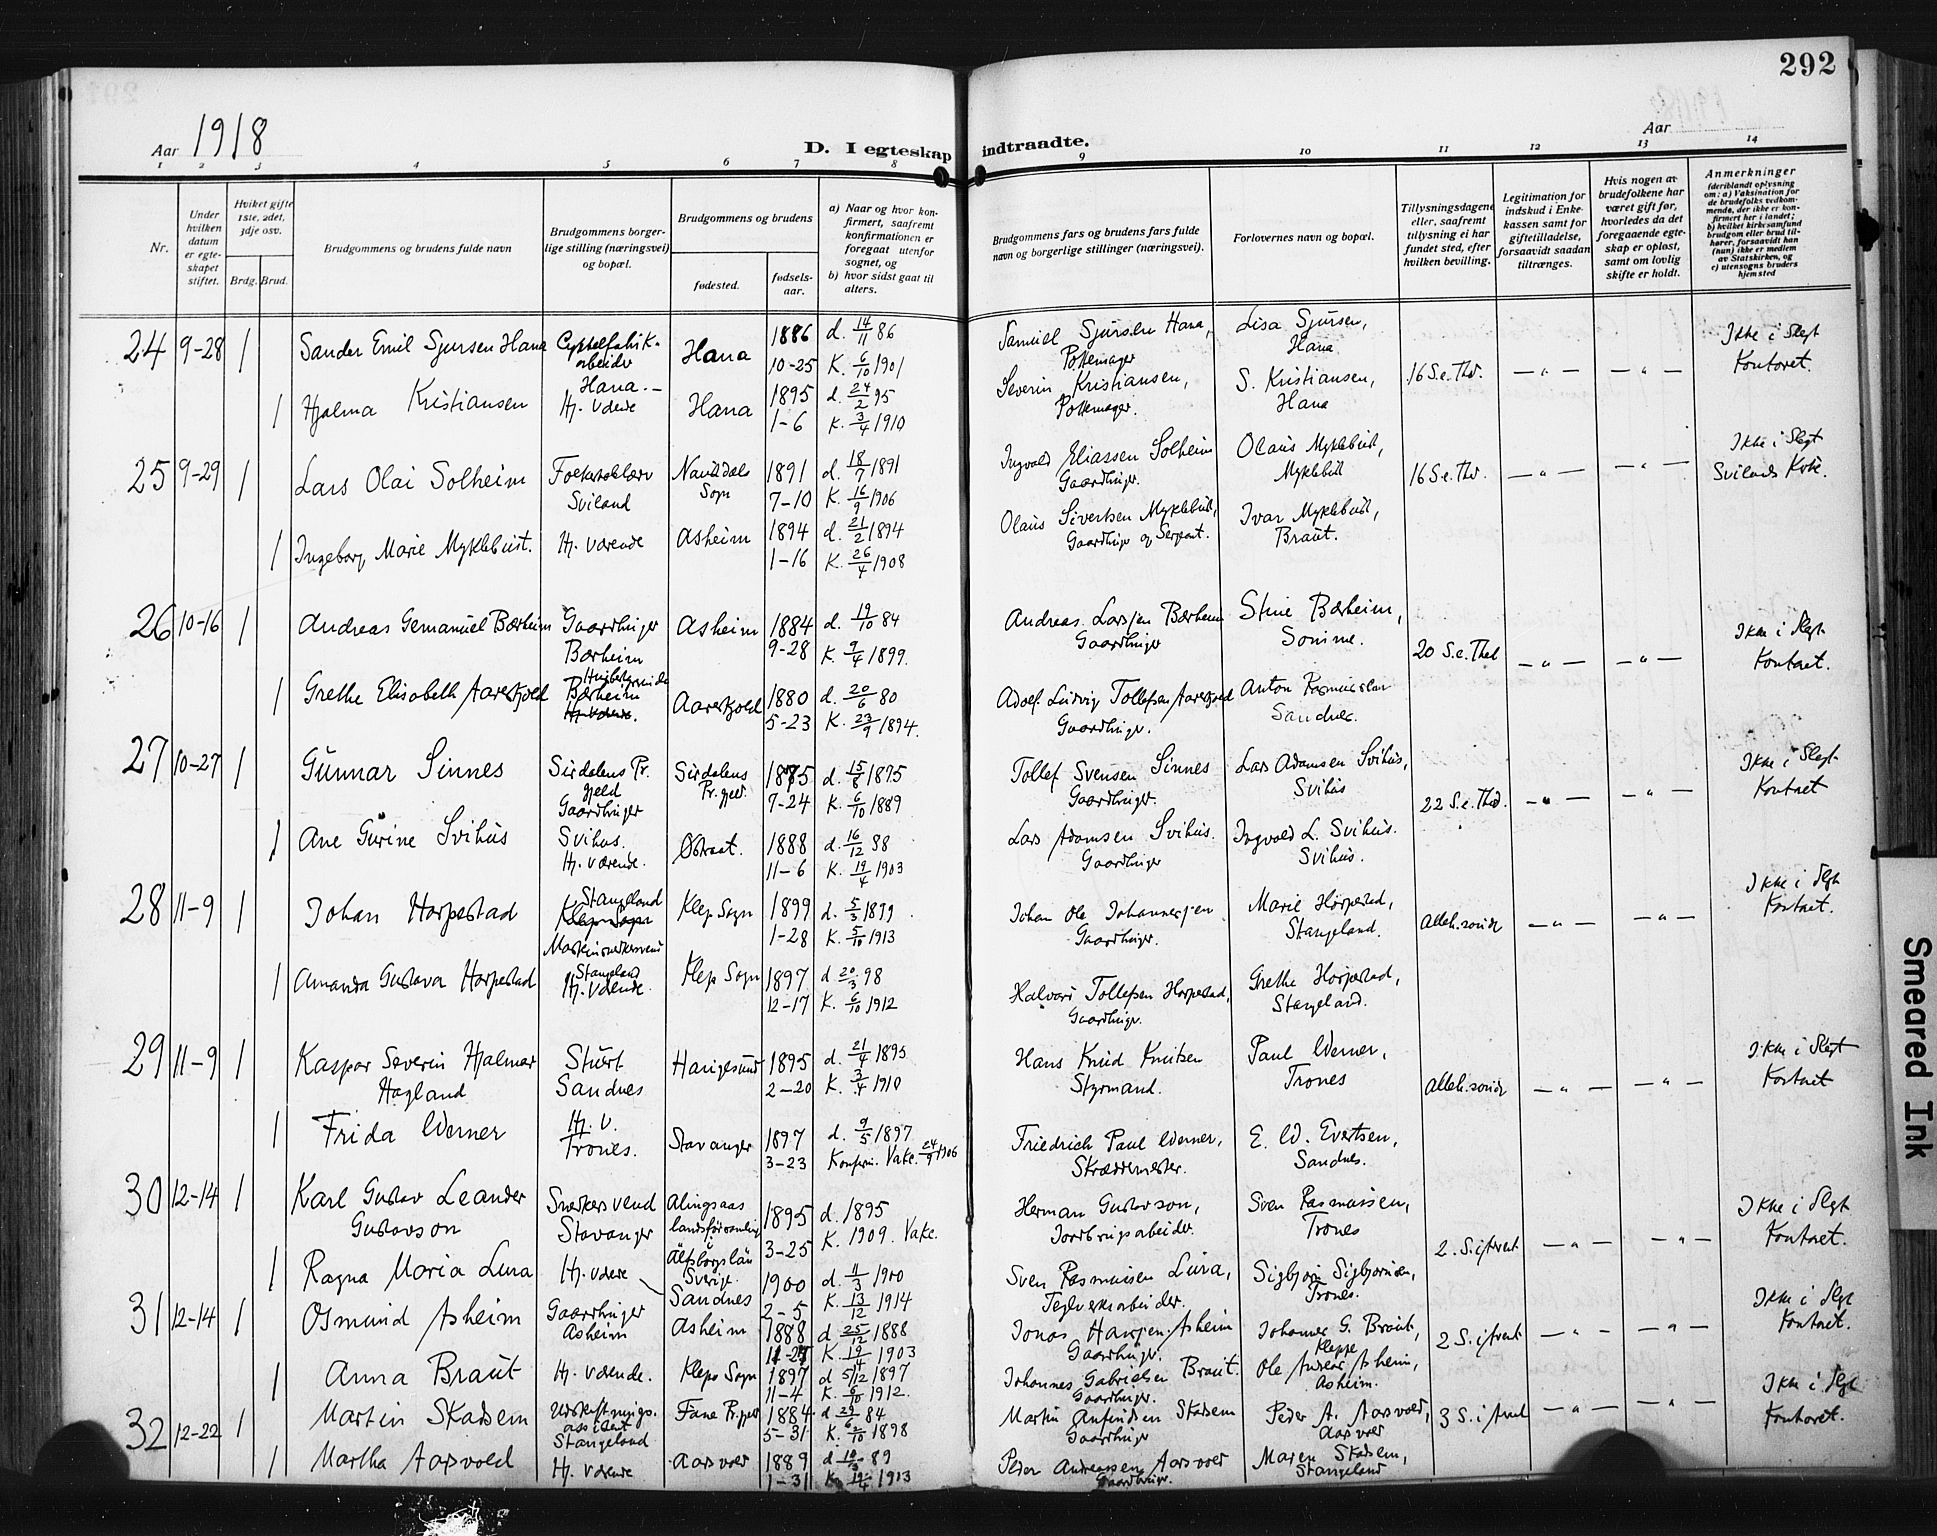 292
Aar 1918
D. I egteskap indtraadte.
Aar
1 2 3 4 5 6 7 8 9 10 11 12 13 14
Nr.
Under hvilken datum er egteskapet stiftet.
Hviket gifte 1ste, 2det, 3dje osv.
Brdg. Brud.
Brudgommens og brudens fulde navn
Brudgommens borgerlige stilling (næringsvei) og bopæl.
Brudgommens og brudens
fødested.
fødselsaar.
a) Naar og hvor konfirmert, saafremt konfirmationen er foregaat utenfor sognet, og
b) hvor sidst gaat til alters.
Brudgommens fars og brudens fars fulde navn og borgerlige stillinger (næringsvei).
Forlovernes navn og bopæl.
Tillysningsdagene eller, saafremt tillysning ei har fundet sted, efter hvilken bevilling.
Legitimation for indskud i Enkekassen samt for giftetilladelse, forsaavidt saadan tiltrænges.
Hvis nogen av brudefolkene har været gift før, hvorledes da det foregaaende egteskap er opløst, samt om lovlig skifte er holdt.
Anmerkninger
(deriblandt oplysning om: a) Vaksination for de brudefolks vedkommende, der ikke er konfirmert her i landet; b) hvilket kirkesamfund brudgom eller brud tilhører, forsaavidt han (hun) ikke er medlem av Statskirken, og c) utensogns bruders hjemsted
24 9-28 1 Sander Emil Sjursen Hana
arbeider
Hana.-
Hana 1886
10-25
d. 14/11 86
K. 6/10 1901
Samuel Sjursen Hana,
Pottemager
Lisa Sjursen,
Hana
16 S.e. Thr. — " — — " — Ikke i Slegt
Kontoret.
1 Hjalma Kristiansen
Hj. Værende
Hana 1895
1-6
d. 24/2 95
K. 3/4 1910
Severin Kristiansen,
Pottemager.
S. Kristiansen,
Hana
25 9-29 1 Lars Olai Solheim
Sviland
Sogn
1891
7-10
d. 18/7 1891
K. 16/9 1906
Ingvald Eliassen Solheim
Gaardbruger.
Olaus Myklebust,
Myklebust
16 S.e. Thr. — " — — " — Ikke i Slegt
1 Ingeborg Marie Myklebust.
Hj. værende
Asheim 1894
1-16
d. 21/2 1894
K. 26/4 1908
Olaus Sivertsen Myklebust,
Gaardbruger og Sergeant.
Ivar Myklebust,
Braut.
26 10-16 1 Andreas Gemanuel Bærheim
Gaardbruger
Bærheim
Asheim 1884
9-28
d. 19/10 84
K. 9/4 1899.
Andreas Larssen Bærheim
Gaardbruger
Stine Bærheim,
Somme.
20 S.e. Thr. — " — — " — Ikke i Slegt
Kontoret.
1 Grethe Elisabeth Aareskjold
Bærheim
Hj. værende.
Aareskjold 1880
5-23
d. 20/6 80
K. 23/9 1894.
Adolf Ludvig Tollefsen Aareskjold
Gaardbruger.
Anton Rasmussen
Sandnes.
27 10-27 1 Gunnar Sinnes
Sirdalens Pr.
gjeld
Gaardbruger
Sirdalens
Pr. gjeld.
1875
7-24
d. 15/8 1875
K. 6/10 1889
Tollef Svensen Sinnes
Gaardbruger.
Lars Adamsen Svihus,
Svihus
22 S.e. Thr. — " — — " — Ikke i Slegt
Kontoret
1 Ane Gurine Svihus
Svihus.
Hj. værende.
Østraat. 1888
11-6
d. 16/12 88
K. 19/4 1903
Lars Adamsen Svihus.
Gaardbruger
Ingvald L. Svihus.
Svihus.
28 11-9 1 Johan Horpestad
Stangeland
Klep Sogn
Klep Sogn 1899
1-28
d. 5/3 1899.
K. 5/10 1913
Johan Ole Johannessen
Gaardbruger.
Marie Horpestad,
Stangeland.
Alleh. søndg — " — — " — Ikke i Slegt
Kontoret.
1 Amanda Gustava Horpestad
Stangeland
Hj. Værende.
Klep Sogn 1897
12-17
d 20/3 98
K. 6/10 1912
Halvard Tollefsen Horpestad,
Gaardbruger.
Grethe Horpestad,
Stangeland.
29 11-9 1 Kaspar Severin Hjalmar
Hagland
Sandnes
Haugesund 1895
2-20
d. 21/4 1895
K. 3/4 1910
Hans Knud Knutsen
Styrmand.
Paul Werner,
Trones
Alleh. søndg — " — — " — Ikke i Slegt
Kontoret
1 Frida Werner
Hj. V.
Trones.
Stavanger 1897
3-23
d. 9/5 1897
Konfirm. Vakc. 24/9 1906
Friedrich Paul Werner,
Skræddermester.
E. W. Evertsen,
Sandnes.
30 12-14 1 Karl Gustav Leander
Gustavson
Snekkersvend
Stavanger
Alingsaas
landsförsamling
i
Älfsborgslän
Sverige.
1895
3-25
d. 1895
K. 1909. Vakc.
Herman Gustavson,
Jordbrugsarbeider.
Sven Rasmussen,
Trones
2. S. i Advent — " — — " — Ikke i Slegt
Kontoret.
1 Ragna Maria Lura
Hj. værende
Sandnes
1900
2-5
d. 11/3 1900
K. 13/12 1914
Sven Rasmussen Lura,
Teglverksarbeider.
Sigbjørn Sigbjørnsen,
Trones.
31 12-14 1 Osmund Asheim
Gaardbruger
Asheim
Asheim 1888
11-27
d 25/12 1888
K. 19/4 1903
Jonas Hansen Asheim
Gaardbruger.
Johannes G. Braut,
Kleppe
2 S. i Advent — " — — " — Ikke i Slegt
Kontoret.
1 Anna Braut
Hj. Værende.
Klep Sogn 1897
11-4
d 5/12 1897
K. 6/10 1912.
Johannes Gabrielsen Braut.
Gaardbruger.
Ole Andreas Asheim,
Asheim.
32 12-22 1 Martin Skadsem
Udskiftnings.
assistent
Stangeland
Fane Pr.gjeld 1884
5-31
d 29/6 84
K. 2/10 1898
Martin Anfindsen Skadsem
Gaardbruger
Peder A. Aarsvold,
Aarsvold
3 S. i Advent — " — — " — Ikke i Slegt
Kontoret.
1 Martha Aarsvold
Hj. Værende
Aarsvold 1889
1-31
d 10/3 89
K. 19/4 1913
Peder Andreassen Aarsvold
Gaardbruger.
Maren Skadsem,
Stangeland
Smeared Ink